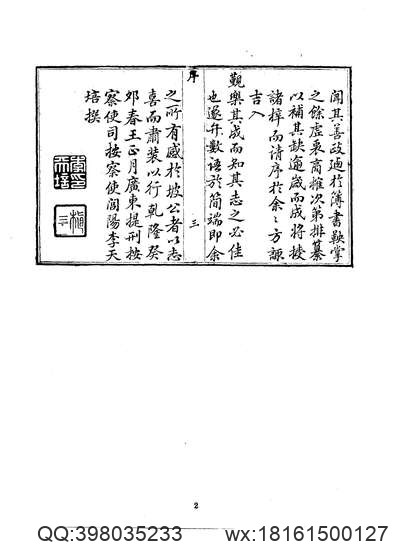 聞其善政廼於簿書鞅掌
之餘虛衷商榷次第排纂
以補其缺逾歲而成將授
諸梓而請序於余〻方諏
吉入
覲樂其成而知其志之必佳
也遂弁數語於簡端即余
序 三
之所有感於坡公者以志
喜而肅裝以行乾隆癸
邜春王正月廣東提刑按
察使司按察使閬陽李天
培撰
2
QQ:398035233
wx:18161500127